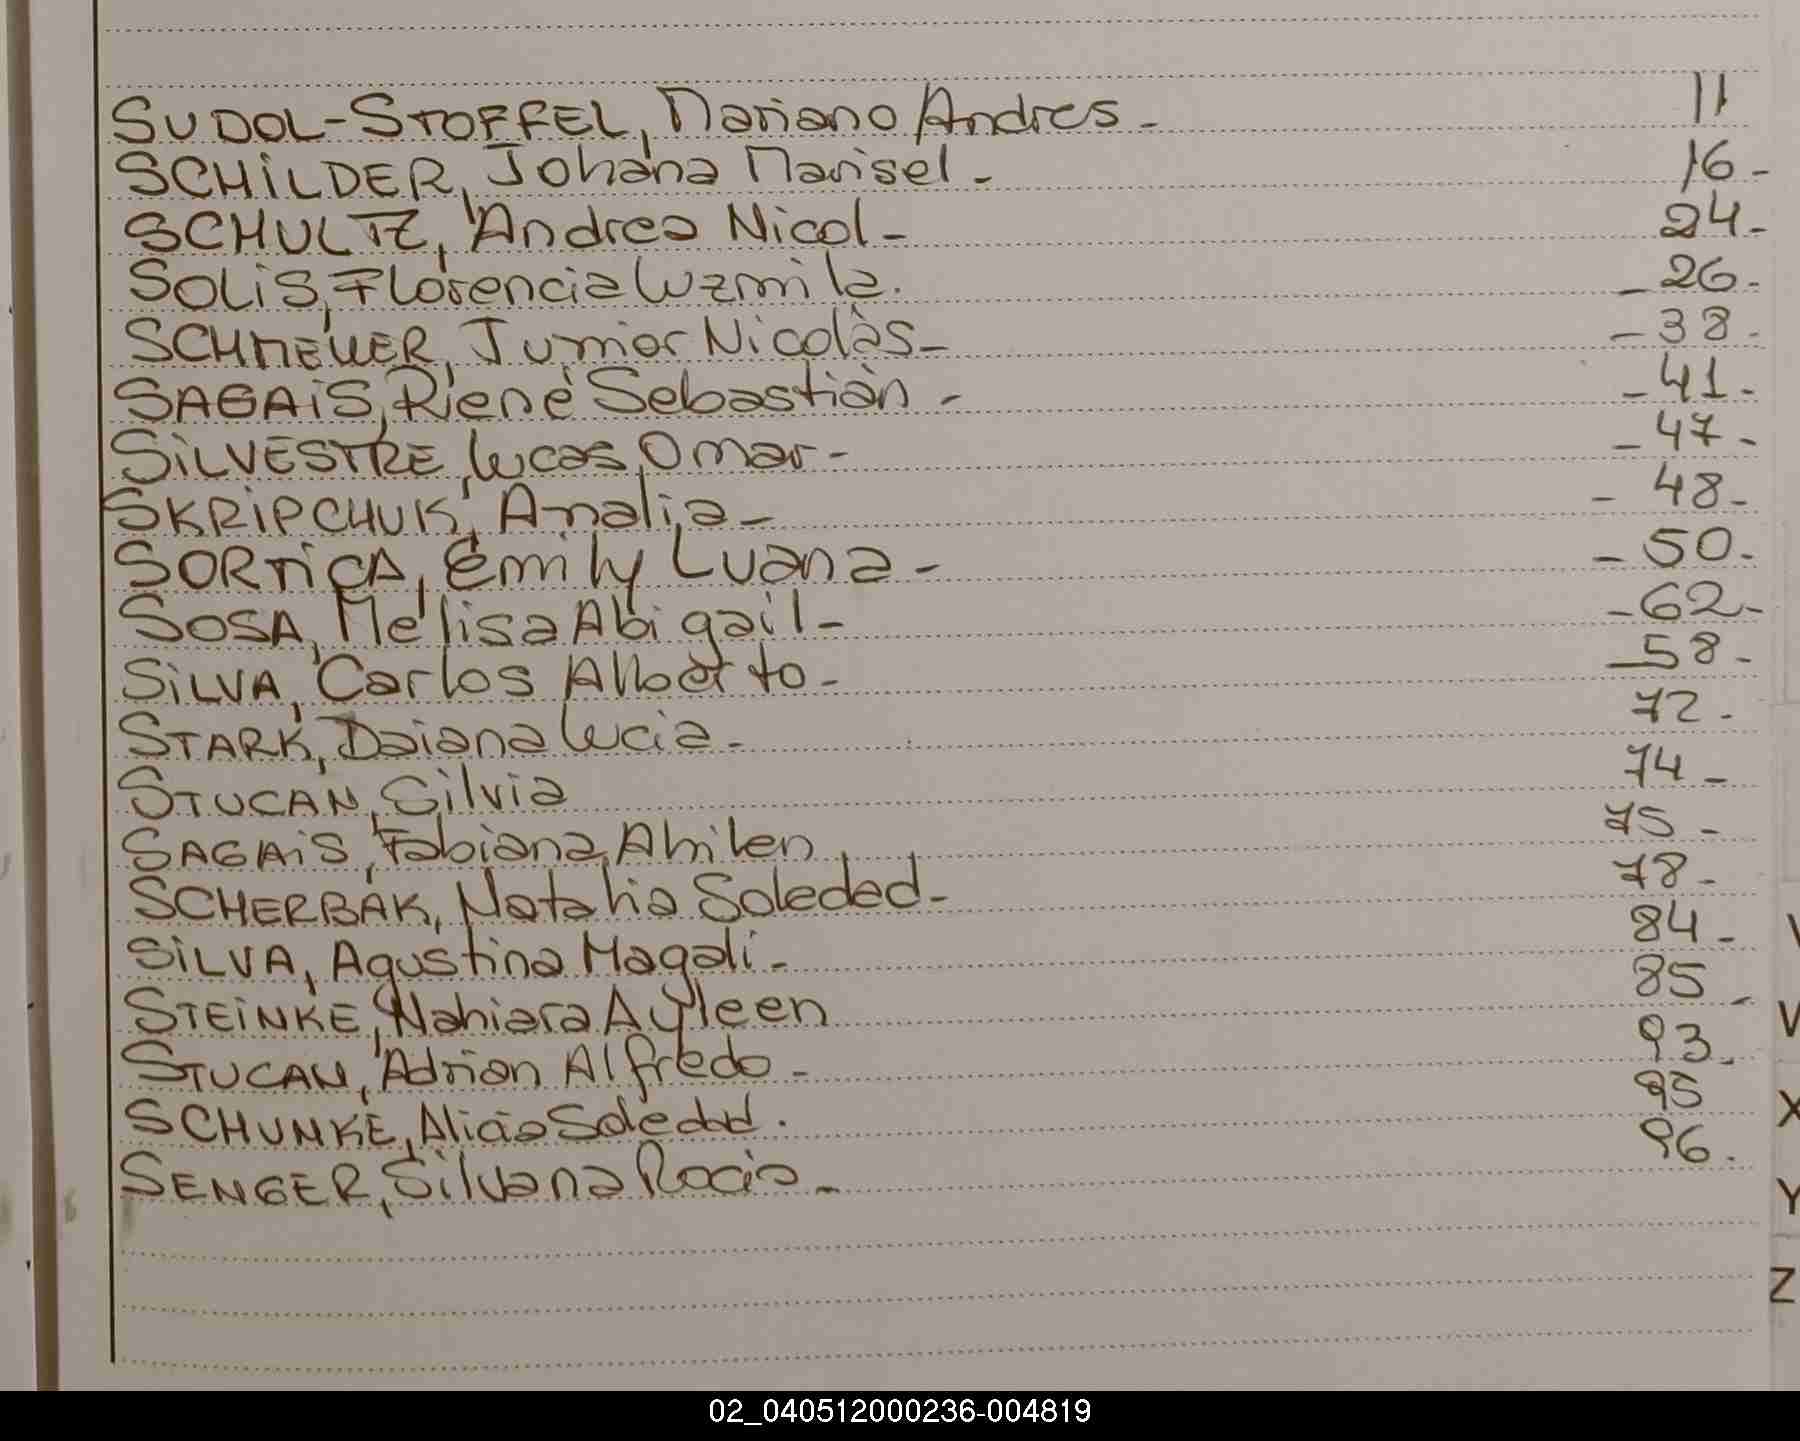 SUDOL-STOFFEL, Mariano Andres - 11
SCHiLDER, Johana Marisel - 16 -
SCHULTZ, Andrea Nicol - 24 -
SOLiS, Florencia Luzmila. - 26 -
SCHMELLER, Junior Nicolàs - - 38 -
SAGAiS, Rene Sebastiàn - - 41 -
SiLVESTRE, Lucas Omar - - 47 -
SKRiPCHUK, Analia - - 48 -
SORTiCA, Emily Luana - - 50 -
SOSA, Melisa Abigail - - 62 -
SiLVA, Carlos Alberto - - 58 -
STARK, Daiana Lucia - 72 -
STUCAN, Silvia 74 -
SAGAiS, Fabiana Ahilen 75 -
SCHERBAK, Natalia Soledad - 78 -
SiLVA, Agustina Magali - 84 -
STEiNKE, Nahiara Ayleen 85 -
STUCAN, Adrian Alfredo - 93 -
SCHUNKE, Alicia Soledad. 95
SENGER, Silvana Rocio - 96 -
V
W
X
Y
Z
02_040512000236-004819